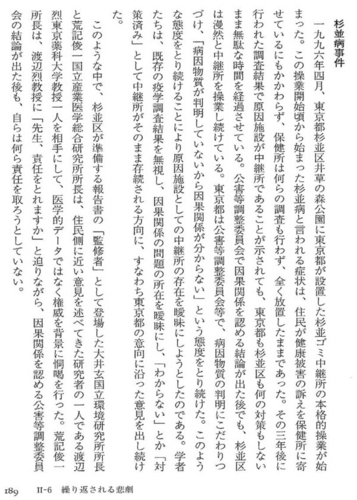 杉並病事件
一九九六年四月、東京都杉並区井草の森公園に東京都が設置した杉並ゴミ中継所の本格的操業が始
まった。この操業開始頃から始まった杉並病と言われる症状は、住民が健康被害の訴えを保健所に寄
せているにもかかわらず、保健所は何らの調査も行わず、全く放置したままであった。その三年後に
行われた調査結果で原因施設が中継所であることが示されても、東京都も杉並区も何の対策もしない
まま無駄な時間を経過させている。公害等調整委員会で因果関係を認める結論が出た後でも、杉並区
は漫然と中継所を操業し続けている。東京都は公害等調整委員会等で、病因物質の判明にこだわりつ
づけ、「病因物質が判明していないから因果関係が分からない」という態度をとり続けた。このよう
な態度をとり続けることにより原因施設としての中継所の存在を曖昧にしようとしたのである。学者
たちは、既存の疫学調査結果を無視し、因果関係の問題の所在を曖昧にし、「わからない」とか「対
策済み」として中継所がそのまま存続される方向に、すなわち東京都の意向に沿った意見を出し続け
た。
このような中で、杉並区が準備する報告書の「監修者」として登場した大井玄国立環境研究所所長
と荒記俊一国立産業医学総合研究所所長は、住民側に近い意見を述べてきた研究者の一人である渡辺
烈東京薬科大学教授一人を相手にして、医学的データではなく権威を背景に恫喝を行った。荒記俊一
所長は、渡辺烈教授に「先生、責任をとれますか」と迫りながら、因果関係を認める公害等調整委員
会の結論が出た後も、自らは何ら責任を取ろうとしていない。
189 II-6 繰り返される悲劇